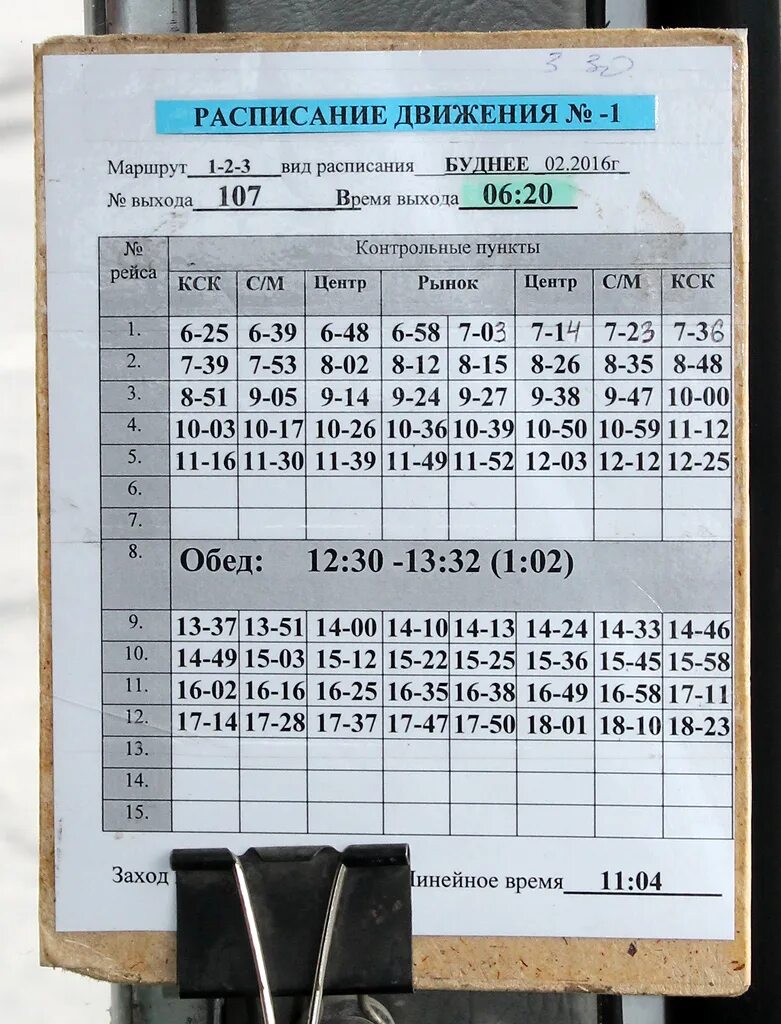 3 30
РАСПИСАНИЕ ДВИЖЕНИЯ № -1
Маршрут 1-2-3 вид расписания БУДНЕЕ 02.2016г
№ выхода 107 Время выхода 06:20
№ рейса Контрольные пункты
КСК С/М Центр Рынок Центр С/М КСК
1. 6-25 6-39 6-48 6-58 7-03 7-14 7-23 7-36
2. 7-39 7-53 8-02 8-12 8-15 8-26 8-35 8-48
3. 8-51 9-05 9-14 9-24 9-27 9-38 9-47 10-00
4. 10-03 10-17 10-26 10-36 10-39 10-50 10-59 11-12
5. 11-16 11-30 11-39 11-49 11-52 12-03 12-12 12-25
6.
7.
8. Обед: 12:30 -13:32 (1:02)
9. 13-37 13-51 14-00 14-10 14-13 14-24 14-33 14-46
10. 14-49 15-03 15-12 15-22 15-25 15-36 15-45 15-58
11. 16-02 16-16 16-25 16-35 16-38 16-49 16-58 17-11
12. 17-14 17-28 17-37 17-47 17-50 18-01 18-10 18-23
13.
14.
15.
Заход Линейное время 11:04